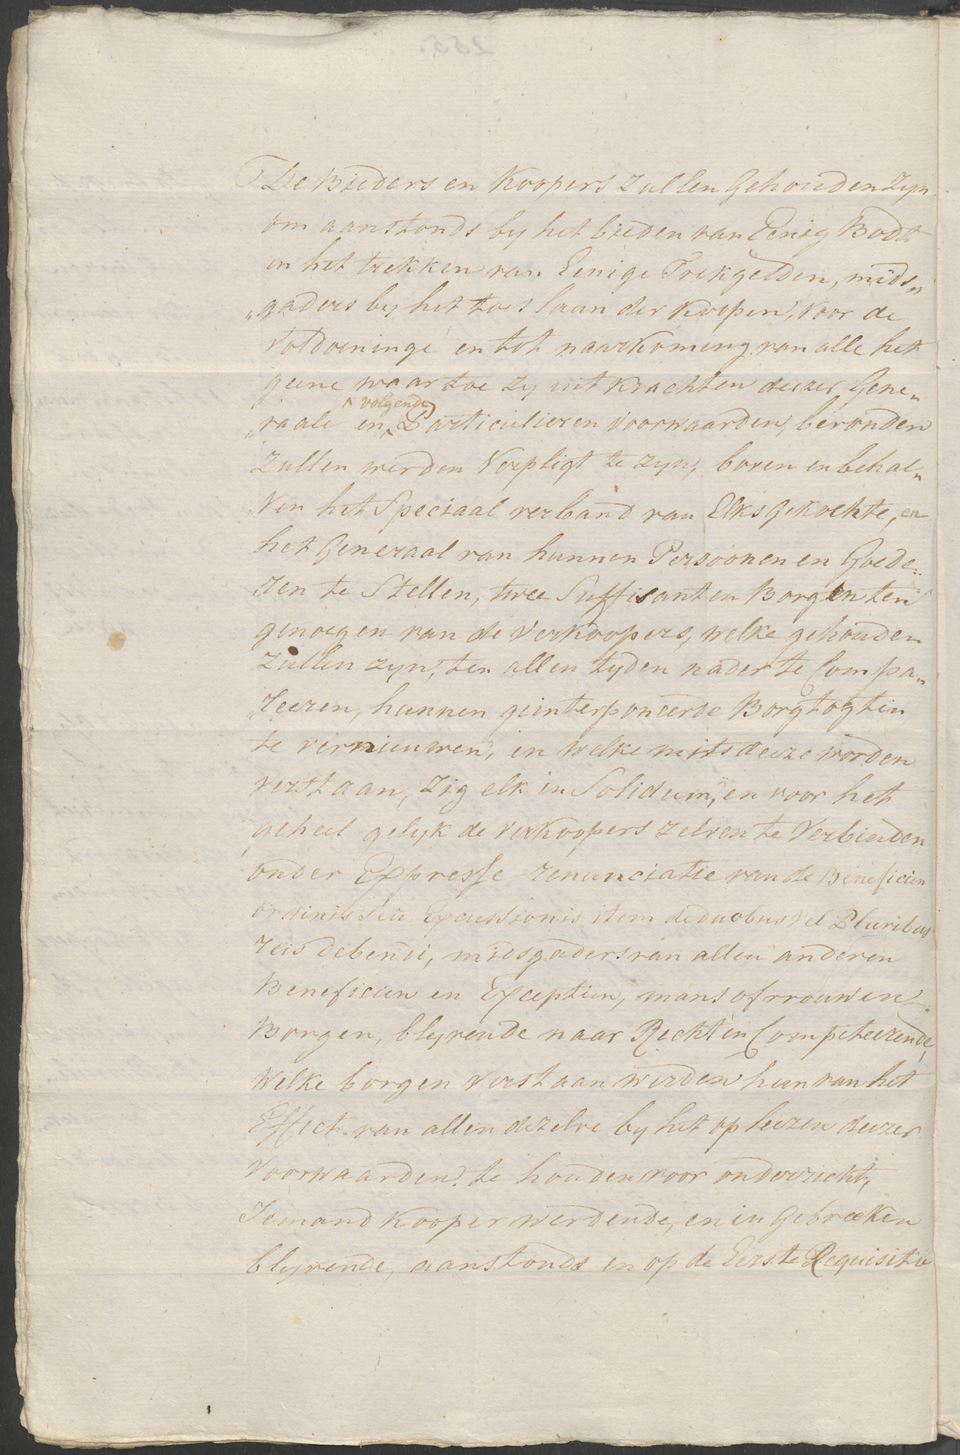 De Bieders en Koopers zullen Gehouden zyn
om aanstonds by het bieden van Eenig Bodt
en het trekken van Eenige Trekgelden, mids„
„gaders by het toeslaan der Koopen, voor de
voldoeninge en tot naarkoming van alle het
geene waartoe zy uit krachten deezer Gene„
„raale en ^volgende Particulieren voorwaarden, bevonden
zullen werden Verpligt te zyn, boven en behal„
ven het Speciaal verband van Elks Gekochte, en
het Generaal van hunnen Persoonen en Goede„
ren te Stellen, twee Suffisanten Borgen ten
genoegen van de Verkoopers, welke gehouden
zullen zyn, ten allen tyden nader te Compa„
„reeren, hunnen geinterponeerde Borgtogten
te vernieuwen, en welke mits deeze worden
verstaan, zig elk in Solidum, en voor het
geheel gelyk de verkoopers zelven te Verbinden
onder Expresse renunciatie van de Beneficien
ordinis seu Excussionis item de duobus vel Pluribus
reis debendi, midsgaders van allen anderen
Beneficien en Exceptien, mans of vrouwen
Borgen, blyvende naar Rechten Competeerende,
welke borgen verstaan werden hun van het
Effect van allen dezelve by het op leezen deezer
voorwaarden te houden voor onderricht,
Iemand kooper werdende, en in Gebreeken
blyvende, aanstonds en op de Eerste Requisitie